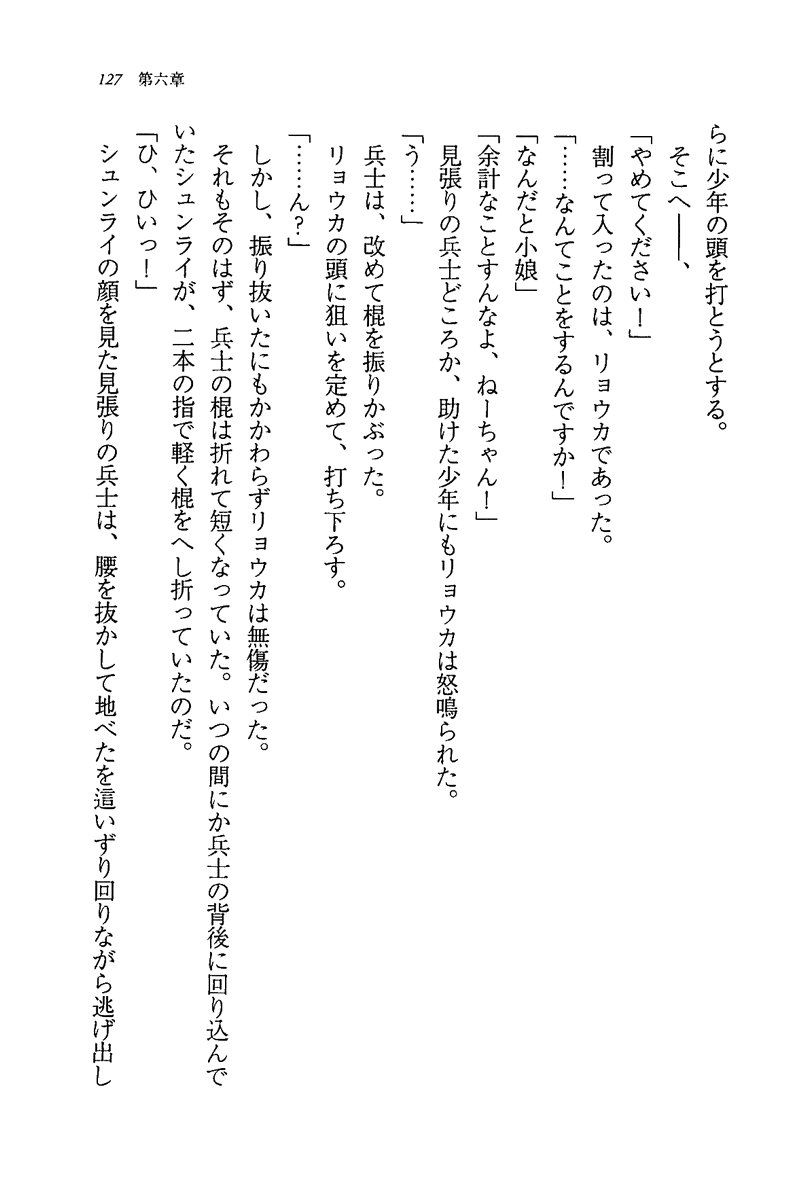 127 第六章
らに少年の頭を打とうとする。
そこへ――、
「やめてください！」
割って入ったのは、リョウカであった。
「……なんてことをするんですか！」
「なんだと小娘」
「余計なことすんなよ、ねーちゃん！」
見張りの兵士どころか、助けた少年にもリョウカは怒鳴られた。
「う……」
兵士は、改めて棍を振りかぶった。
リョウカの頭に狙いを定めて、打ち下ろす。
「……ん？」
しかし、振り抜いたにもかかわらずリョウカは無傷だった。
それもそのはず、兵士の棍は折れて短くなっていた。いつの間にか兵士の背後に回り込んで
いたシュンライが、二本の指で軽く棍をへし折っていたのだ。
「ひ、ひいっ！」
シュンライの顔を見た見張りの兵士は、腰を抜かして地べたを這いずり回りながら逃げ出し